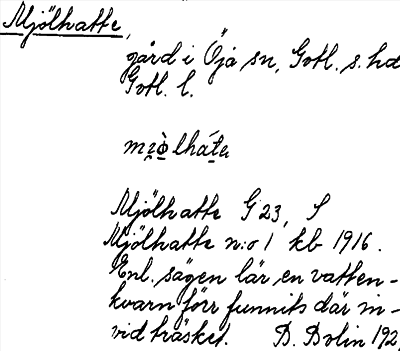 Mjölhatte,
gård i Öja sn, Gotl. s. hd
Gotl. l.
Mjölhatte G 23, S
Mjölhatte n:o 1 kb 1916.
Enl. sägen lär en vatten-
kvarn förr funnits där in-
vid träsket. D. Bolin 192